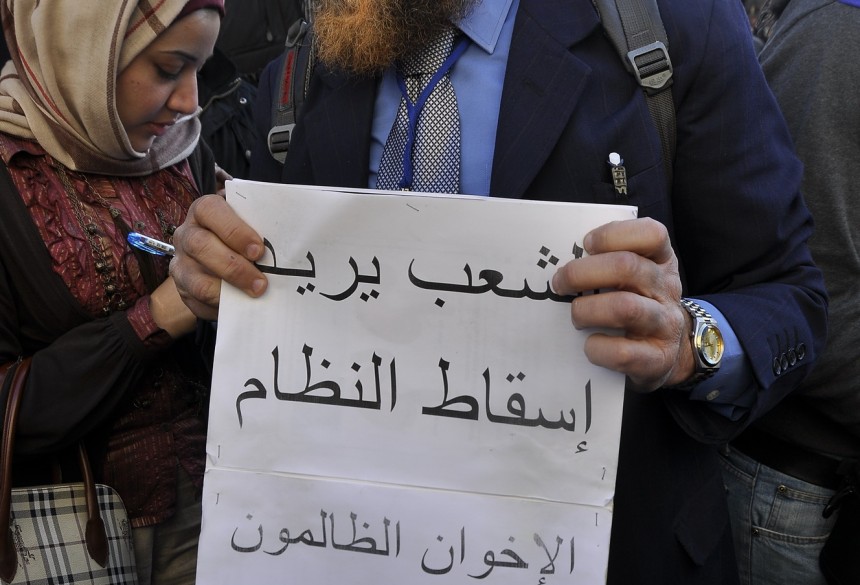 الشعب يريد
إسقاط النظام
الإخوان الظالمون